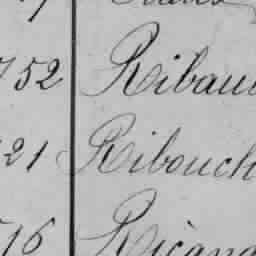 752 Ribau
21 Ribouch
16 Ricano